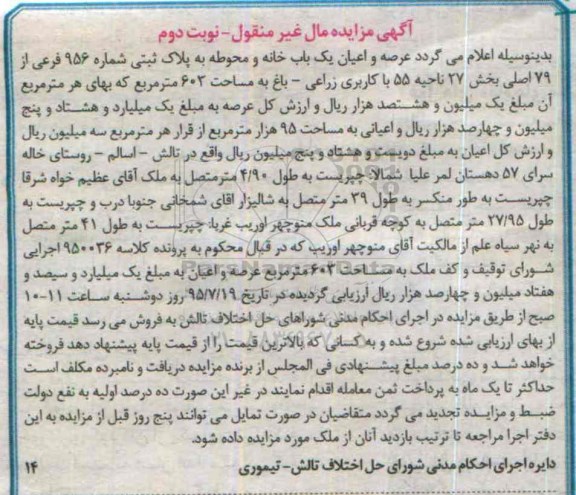 آگهی مزایده مال غیر منقول - نوبت دوم
بدینوسیله اعلام می گردد عرصه و اعیان یک باب خانه و محوطه به پلاک ثبتی شماره ۹۵۶ فرعی از
۷۹ اصلی بخش ۲۷ ناحیه ۵۵ با کاربری زراعی - باغ به مساحت ۶۰۲ مترمربع که بهای هر مترمربع
آن مبلغ یک میلیون و هشتصد هزار ریال و ارزش کل عرصه به مبلغ یک میلیارد و هشتاد و پنج
میلیون و چهارصد هزار ریال و اعیانی به مساحت ۹۵ هزار مترمربع از قرار هر مترمربع سه میلیون ریال
و ارزش کل اعیان به مبلغ دویست و هشتاد و پنج میلیون ریال واقع در تالش - اسالم - روستای خاله
سرای ۵۷ دهستان لمر علیا شمالا: چپریست به طول ۴/۹۰ مترمتصل به ملک آقای عظیم خواه شرقا
چپریست به طور منکسر به طول ۳۹ متر متصل به شالیزار اقای شمخانی جنوبا درب و چپریست به
طول ۲۷/۹۵ متر متصل به کوچه قربانی ملک منوچهر اوریب غربا: چپریست به طول ۴۱ متر متصل
به نهر سیاه علم از مالکیت آقای منوچهر اوریب که در قبال محکوم به پرونده کلاسه ۹۵۰۰۳۶ اجرایی
شورای توقیف و کف ملک به مساحت ۶۰۳ مترمربع عرصه و اعیان به مبلغ یک میلیارد و سیصد و
هفتاد میلیون و چهارصد هزار ریال ارزیابی گردیده در تاریخ ۹۵/۷/۱۹ روز دوشنبه ساعت ۱۱-۱۰
صبح از طریق مزایده در اجرای احکام مدنی شوراهای حل اختلاف تالش به فروش می رسد قیمت پایه
از بهای ارزیابی شده شروع شده و به کسانی که بالاترین قیمت را از قیمت پایه پیشنهاد دهد فروخته
خواهد شد و ده درصد مبلغ پیشنهادی فی المجلس از برنده مزایده دریافت و نامبرده مکلف است
حداکثر تا یک ماه به پرداخت ثمن معامله اقدام نمایند در غیر این صورت ده درصد اولیه به نفع دولت
ضبط و مزایده تجدید می گردد متقاضیان در صورت تمایل می توانند پنج روز قبل از مزایده به این
دفتر اجرا مراجعه تا ترتیب بازدید آنان از ملک مورد مزایده داده شود.
دایره اجرای احکام مدنی شورای حل اختلاف تالش- تیموری ۱۴